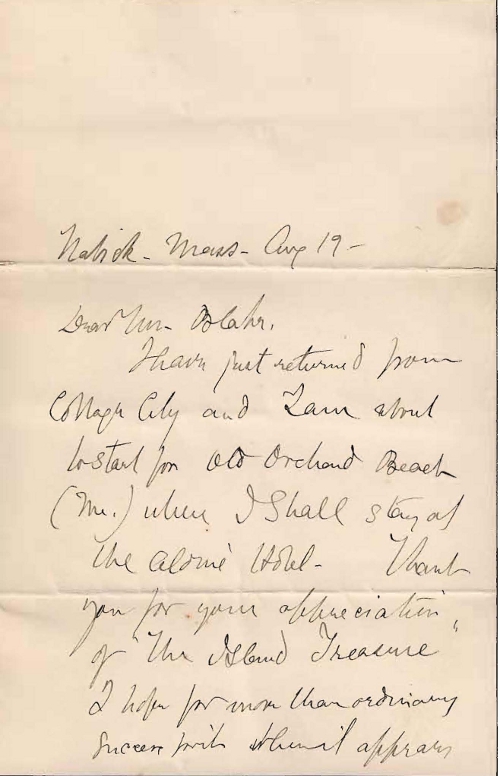 Natick - Mass - Aug 19 -
Dear Mr. Blake,
I have just returned from
Cottage City and I am about
to start for Old Orchard Beach
(Me.) where I shall stay at
the Hotel - Thank
you for your appreciation
of "The Island Treasure"
I hope for more than ordinary
success with when it appears